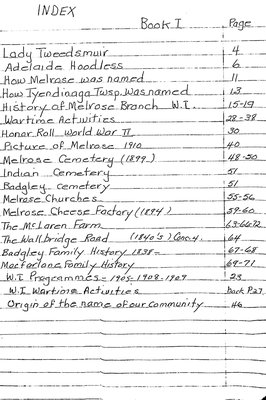 INDEX
Book I Page
Lady Tweedsmuir 4
Adelaide Hoodless 6
How Melrose was named 11
How Tyendinaga Twsp. Was named 13
History of Melrose Branch W.I. 15-19
Wartime Activities 28-38
Honor Roll World War II 30
Picture of Melrose 1910 40
Melrose Cemetery (1899) 48-50
Indian Cemetery 51
Badgley cemetery 51
Melrose Churches 55-56
Melrose Cheese Factory (1894) 59-60
The McLaren Farm 63-66-72
The Wallbridge Road (1840's) Conc. 4. 64
Badgley Family History 1838- 67-68
Macfarlane Family History 69-71
W.I. Programmes - 1905-1908-1909 23
W.I. Wartime Activities back P.27
Origin of the name of our community 46